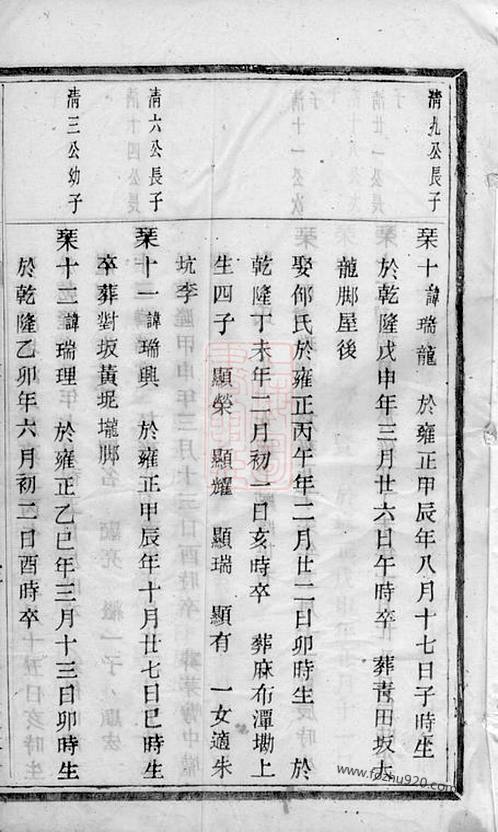 清九公長子
栞十諱瑞龍 於雍正甲辰年八月十七日子時生
於乾隆戊申年三月廿六日午時卒 葬青田坂大
龍脚屋後
娶邱氏於雍正丙午年二月廿二日卯時生 於
乾隆丁未年二月初一日亥時卒 葬麻布潭墈上
生四子 顯榮 顯耀 顯瑞 顯有 一女適朱
坑李
清六公長子
栞十一諱瑞興 於雍正甲辰年十月廿七日巳時生
卒葬對坂黃坭壠脚
清三公幼子
栞十二諱瑞理 於雍正乙巳年三月十三日卯時生
於乾隆乙卯年六月初二日酉時卒
www.fozhu920.com